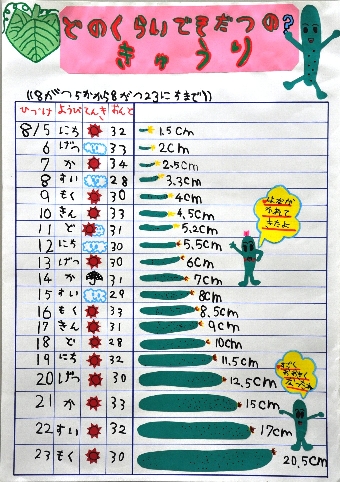 どのくらいでそだつの?
きゅうり
((8がつ5かから8がつ23にちまで))
ひづけ ようび てんき おんど
8/5 にち 32 1.5cm
6 げつ 33 2cm
7 か 34 2.5cm
8 すい 28 3.3cm
9 もく 30 4cm
10 きん 33 4.5cm
11 ど 30 5.2cm
12 にち 30 5.5cm
13 げつ 30 6cm
14 か 31 7cm
15 すい 29 8cm
16 もく 33 8.5cm
17 きん 31 9cm
18 ど 28 10cm
19 にち 32 11.5cm
20 げつ 30 12.5cm
21 か 33 15cm
22 すい 32 17cm
23 もく 30 20.5cm
はなが
かれて
きたよ
すごく
おおきく